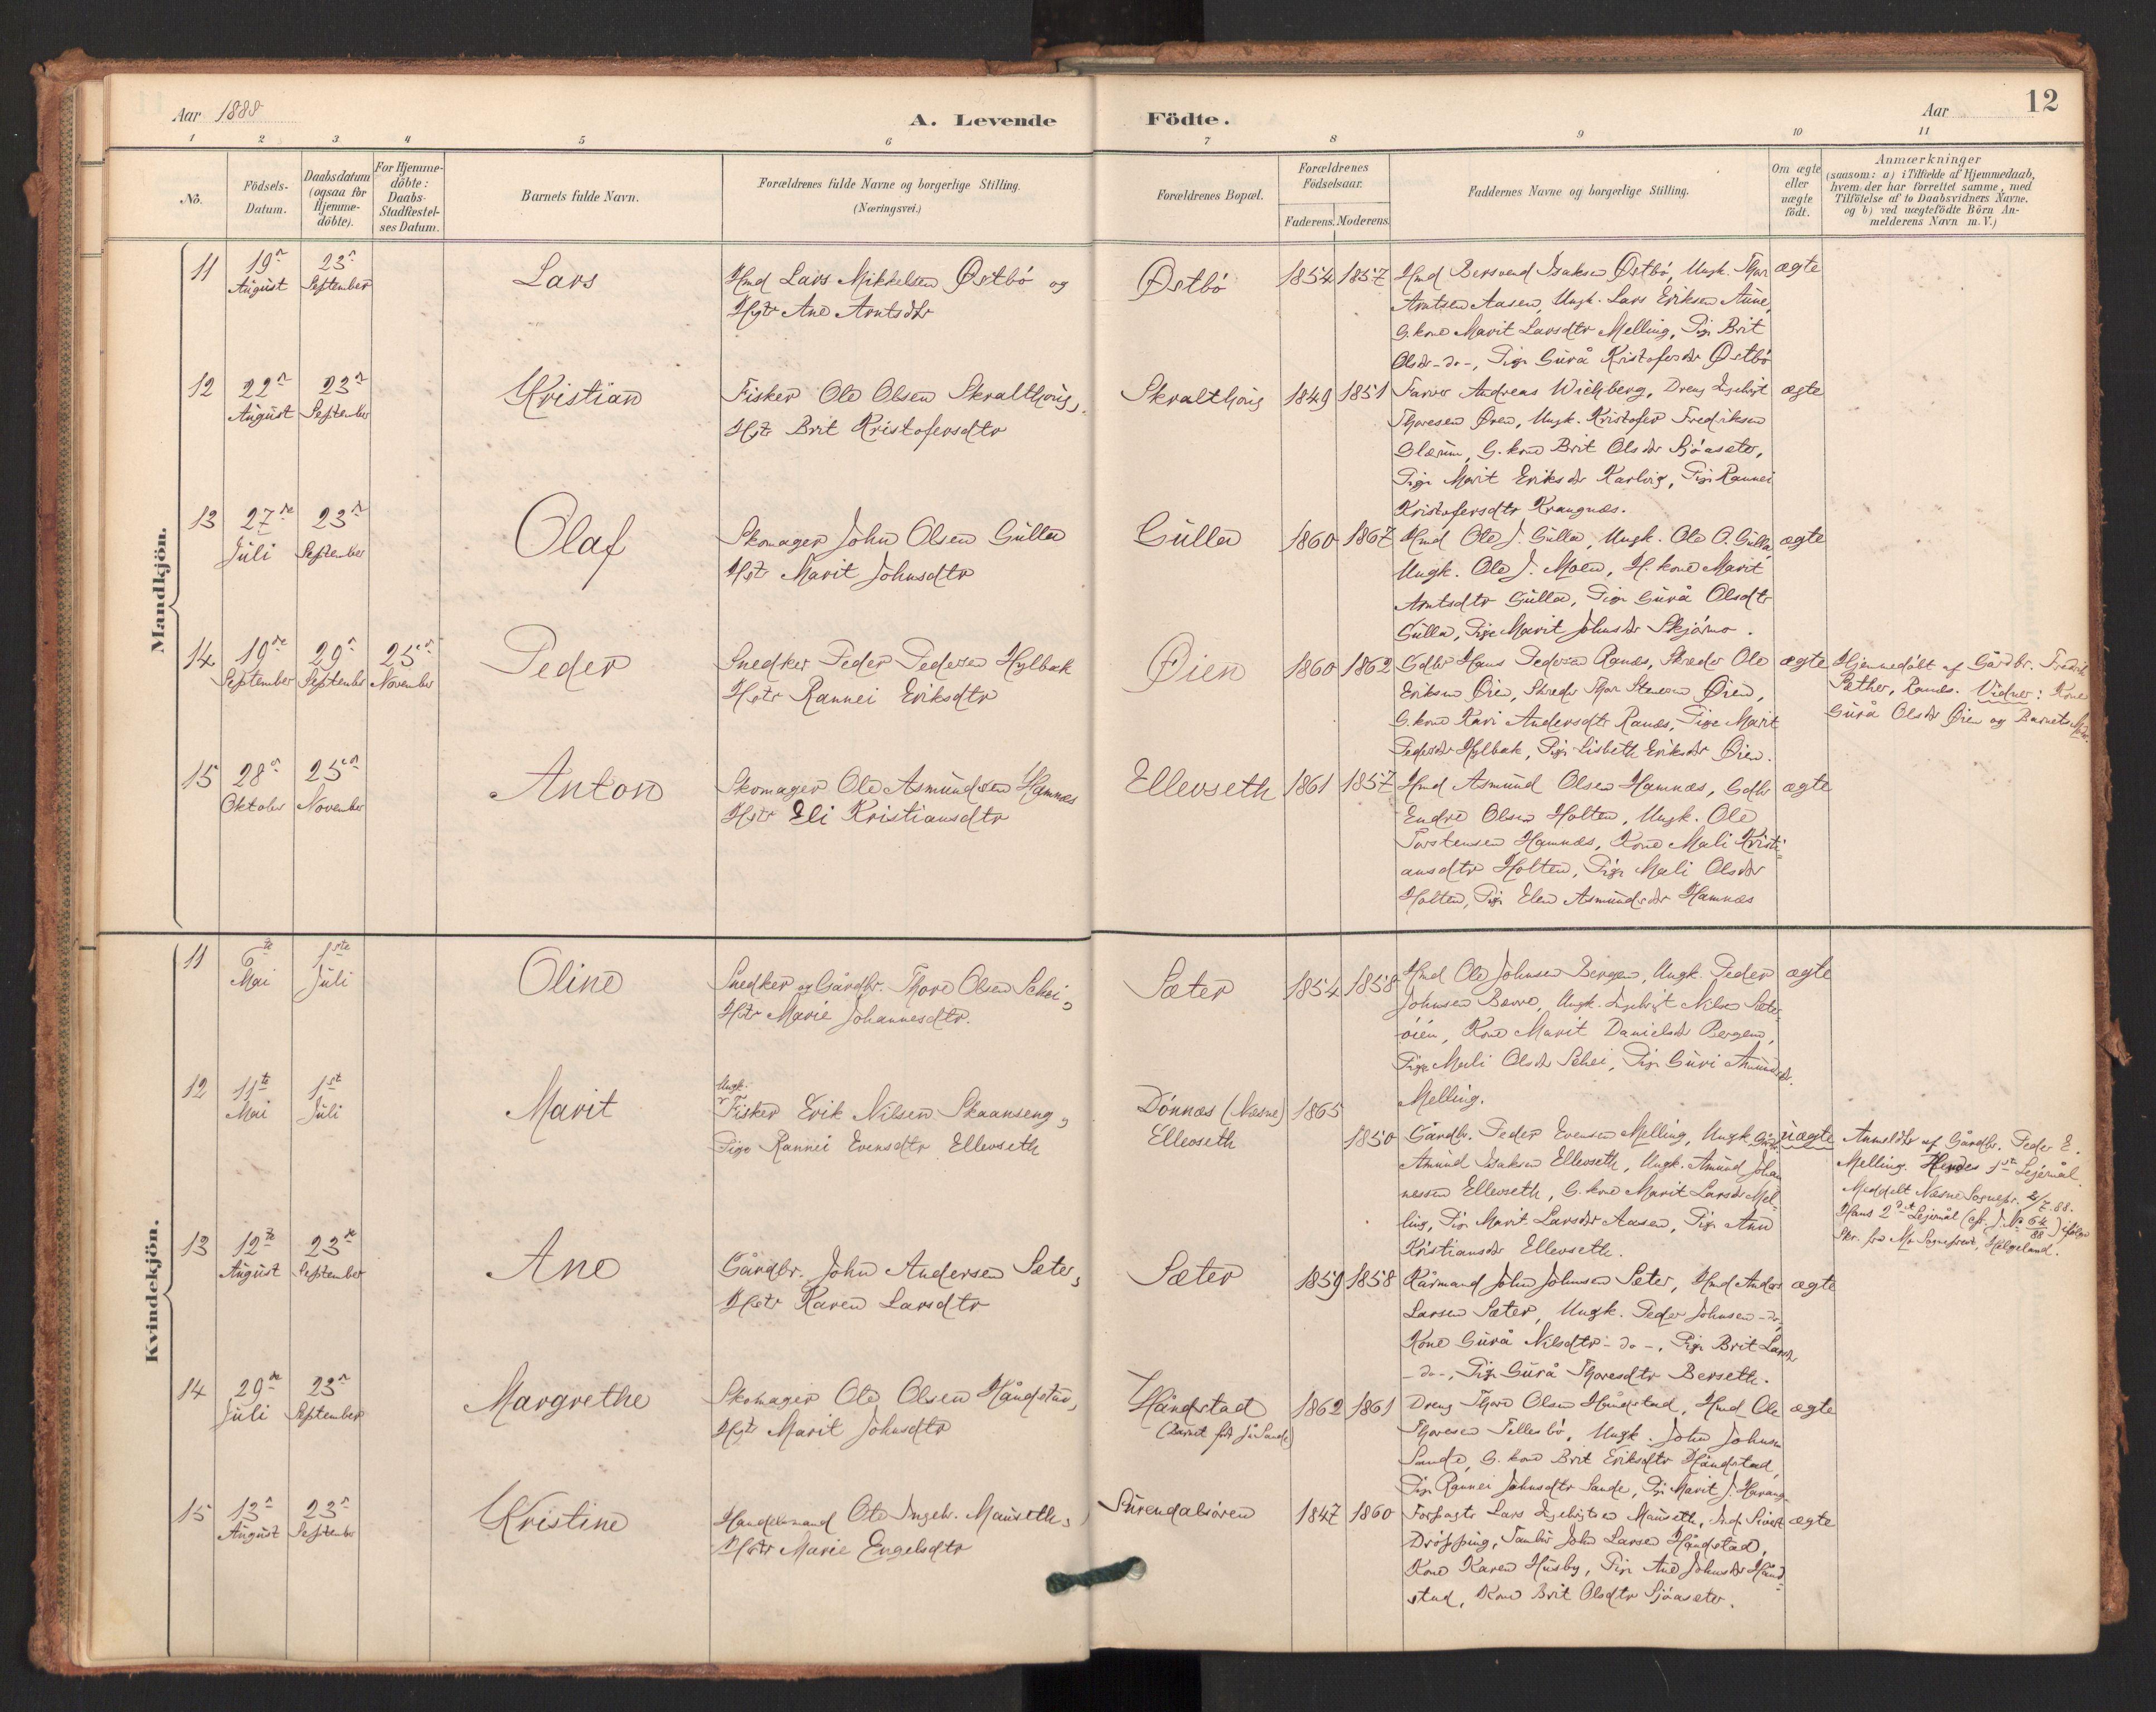 Aar 1888
A. Levende Födte.
Aar
12
1 2 3 4 5 6 7 8 9 10 11
No.
Födsels-Datum.
Daabsdatum (ogsaa for Hjemme-döbte).
For Hjemme-döbte: Daabs-Stadfæstel-ses Datum.
Barnets fulde Navn.
Forældrenes fulde Navne og borgerlige Stilling. (Næringsvei.)
Forældrenes Bopæl.
Forældrenes Födselsaar.
Faderens. Moderens.
Faddernes Navne og borgerlige Stilling.
Om ægte eller uægte födt.
Anmærkninger
(saasom: a) i Tilfælde af Hjemmedaab,
hvem der har forrettet samme, med
Tilföielse af to Daabsvidners Navne.
og b) ved uægtefödte Börn An-
melderens Navn m.V.)
Mandkjön.
11 19de August 23de September Lars
Hmd Lars Mikkelsen Østbö og
Hstr Ane Arntsdtr
Østbö 1854 1857
Hmd Bersvend Isaksen Østbö, Ungk. Thor
Arntsen Aasen, Ungk. Lars Eriksen Aune,
G.kone Marit Larsdtr Melling, Pige Brit
Olsdr -do-, Pige Gurå Kristofersdr Østbö
ægte
12 22de August 23de September Kristian
Fisker Ole Olsen Skralthaug,
Hstr Brit Kristofersdtr
Skralthaug 1849 1851
Farver Andreas Wichberg, Dreng Ingebrigt
Thoresen Øren, Ungk. Kristofer Fredriksen
Glærum, G.kone Brit Olsdr Sjöaseter,
Pige Marit Eriksdr Karlvig, Pige Rannei
Kristofersdtr Krangnæs.
ægte
13 27de Juli 23de September Olaf
Skomager John Olsen Gulla
Hstr Marit Johnsdtr
Gulla 1860 1867
Hmd Ole J. Gulla, Ungk. Ole O. Gulla,
Ungk. Ole J. Moen, H.kone Marit
Arntsdtr Gulla, Pige Gurå Olsdtr
Gulla, Pige Marit Johnsdr Skjörmo.
ægte
14 19de September 29de September 25de November Peder
Snedker Peder Pedersen Hylbak
Hstr Rannei Eriksdtr
Øien 1860 1862
Gdbr Hans Pedersen Ranæs, Skreder Ole
Eriksen Øien, Skreder Thor Stenersen Øien,
G.kone Kari Andersdtr Ranæs, Pige Marit
Pedersdr Hylbak, Pige Lisbeth Eriksdr Øien.
ægte
Hjemmedöbt af Gårdbr. Fredrik
Pæther, Ranæs. Vidner: Kone
Gurå Olsdr Øien og Barnets Moder.
15 28de Oktober 25de November Anton
Skomager Ole Asmundsen Hamnæs
Hstr Eli Kristiansdtr
Ellevseth 1861 1857
Hmd Asmund Olsen Hamnæs, Gdbr
Endre Olsen Holten, Ungk. Ole
Torstensen Hamnæs, Kone Mali Kristi-
ansdtr Holten, Pige Mali Olsdr
Holten, Pige Elen Asmundsdr Hamnæs
ægte
Kvindekjön.
11 6te Mai 1ste Juli Oline
Snedker og Gårdbr. Thore Olsen Schei,
Hstr Marie Johannesdtr.
Sæter 1854 1858
Hmd Ole Johnsen Bergen, Ungk. Peder
Johnsen Bævre, Ungk. Ingebrigt Nilsen Sæter-
öien, Kone Marit Danielsdr Bergen,
Pige Mali Olsdr Schei, Pige Guri Amundsdr.
Melling.
ægte
12 11te Mai 1ste Juli Marit
Ungk.
Fisker Erik Nilsen Skaanseng,
Pige Rannei Evensdtr Ellevseth
Dönnæs (Næsne) 1865
Ellevseth 1850
Gårdbr. Peder Evensen Melling, Ungk Gårdbr.
Amund Isaksen Ellevseth, Ungk. Amund Johan
nessen Ellevseth, G.kone Marit Larsdr Mel-
ling, Pige Marit Larsdr Aasen, Pige Ane
Kristiansdr Ellevseth.
uægte
Anmeldt af Gårdbr. Peder E.
Melling. Hendes 1ste Lejermål.
Meddelt Næsne Sognepr. 2/7 88.
Hans 2det Lejermål (cfr. J.No 64/88) ifölge
Skr. fra Mo Sognepræst, Helgeland.
13 12te August 23de September Ane
Gårdbr. John Andersen Sæter,
Hstr Karen Larsdtr
Sæter 1859 1858
Kårmand John Johnsen Sæter, Hmd Anders
Larsen Sæter, Ungk. Peder Johnsen -do-,
Kone Gurå Nilsdtr -do-, Pige Brit Larsdr
-do-, Pige Gurå Thoresdtr Berseth.
ægte
14 29de Juli 23de September Margrethe
Skomager Ole Olsen Håndstad,
Hstr Marit Johnsdtr
Håndstad
(Barnet född på Sande) 1862 1861
Dreng Thore Olsen Håndstad, Hmd Ole
Thoresen Tellesbö, Ungk. John Johnsen
Sande, G.kone Brit Eriksdtr Håndstad,
Pige Rannei Johnsdtr Sande, Pige Marit J. Harang
ægte
15 13de August 23de September Kristine
Handelsmand Ole Ingebr. Mauseth,
Hstr Marie Engelsdtr
Surendalsören 1847 1860
Forpagter Lars Ingebrigtsen Mauseth, Sivert
Dröpping, Tambur John Larsen Håndstad,
Kone Karen Husby, Pige Ane Johnsdr Hånd-
stad, Kone Brit Olsdtr Sjöaseter.
ægte